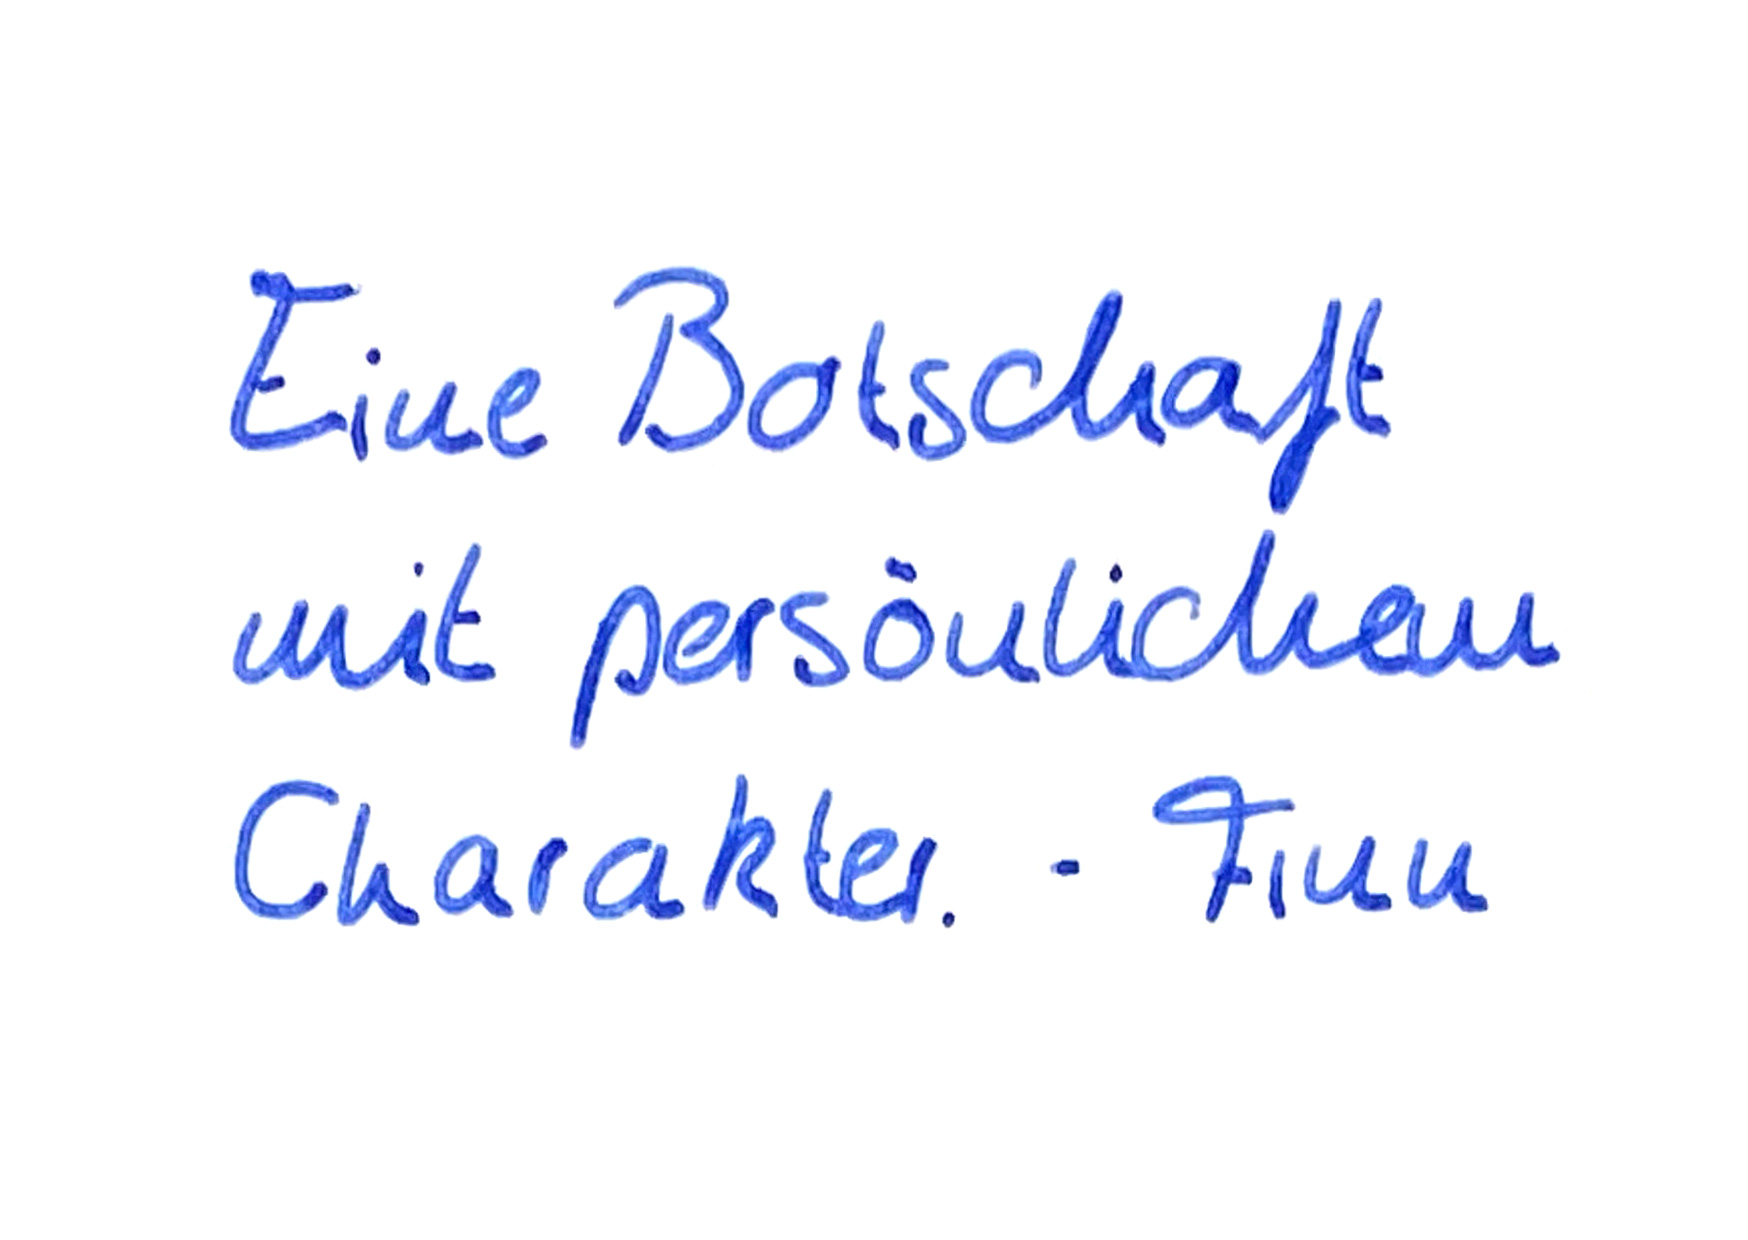 Eine Botschaft
mit persönlichem
Charakter. - Finn